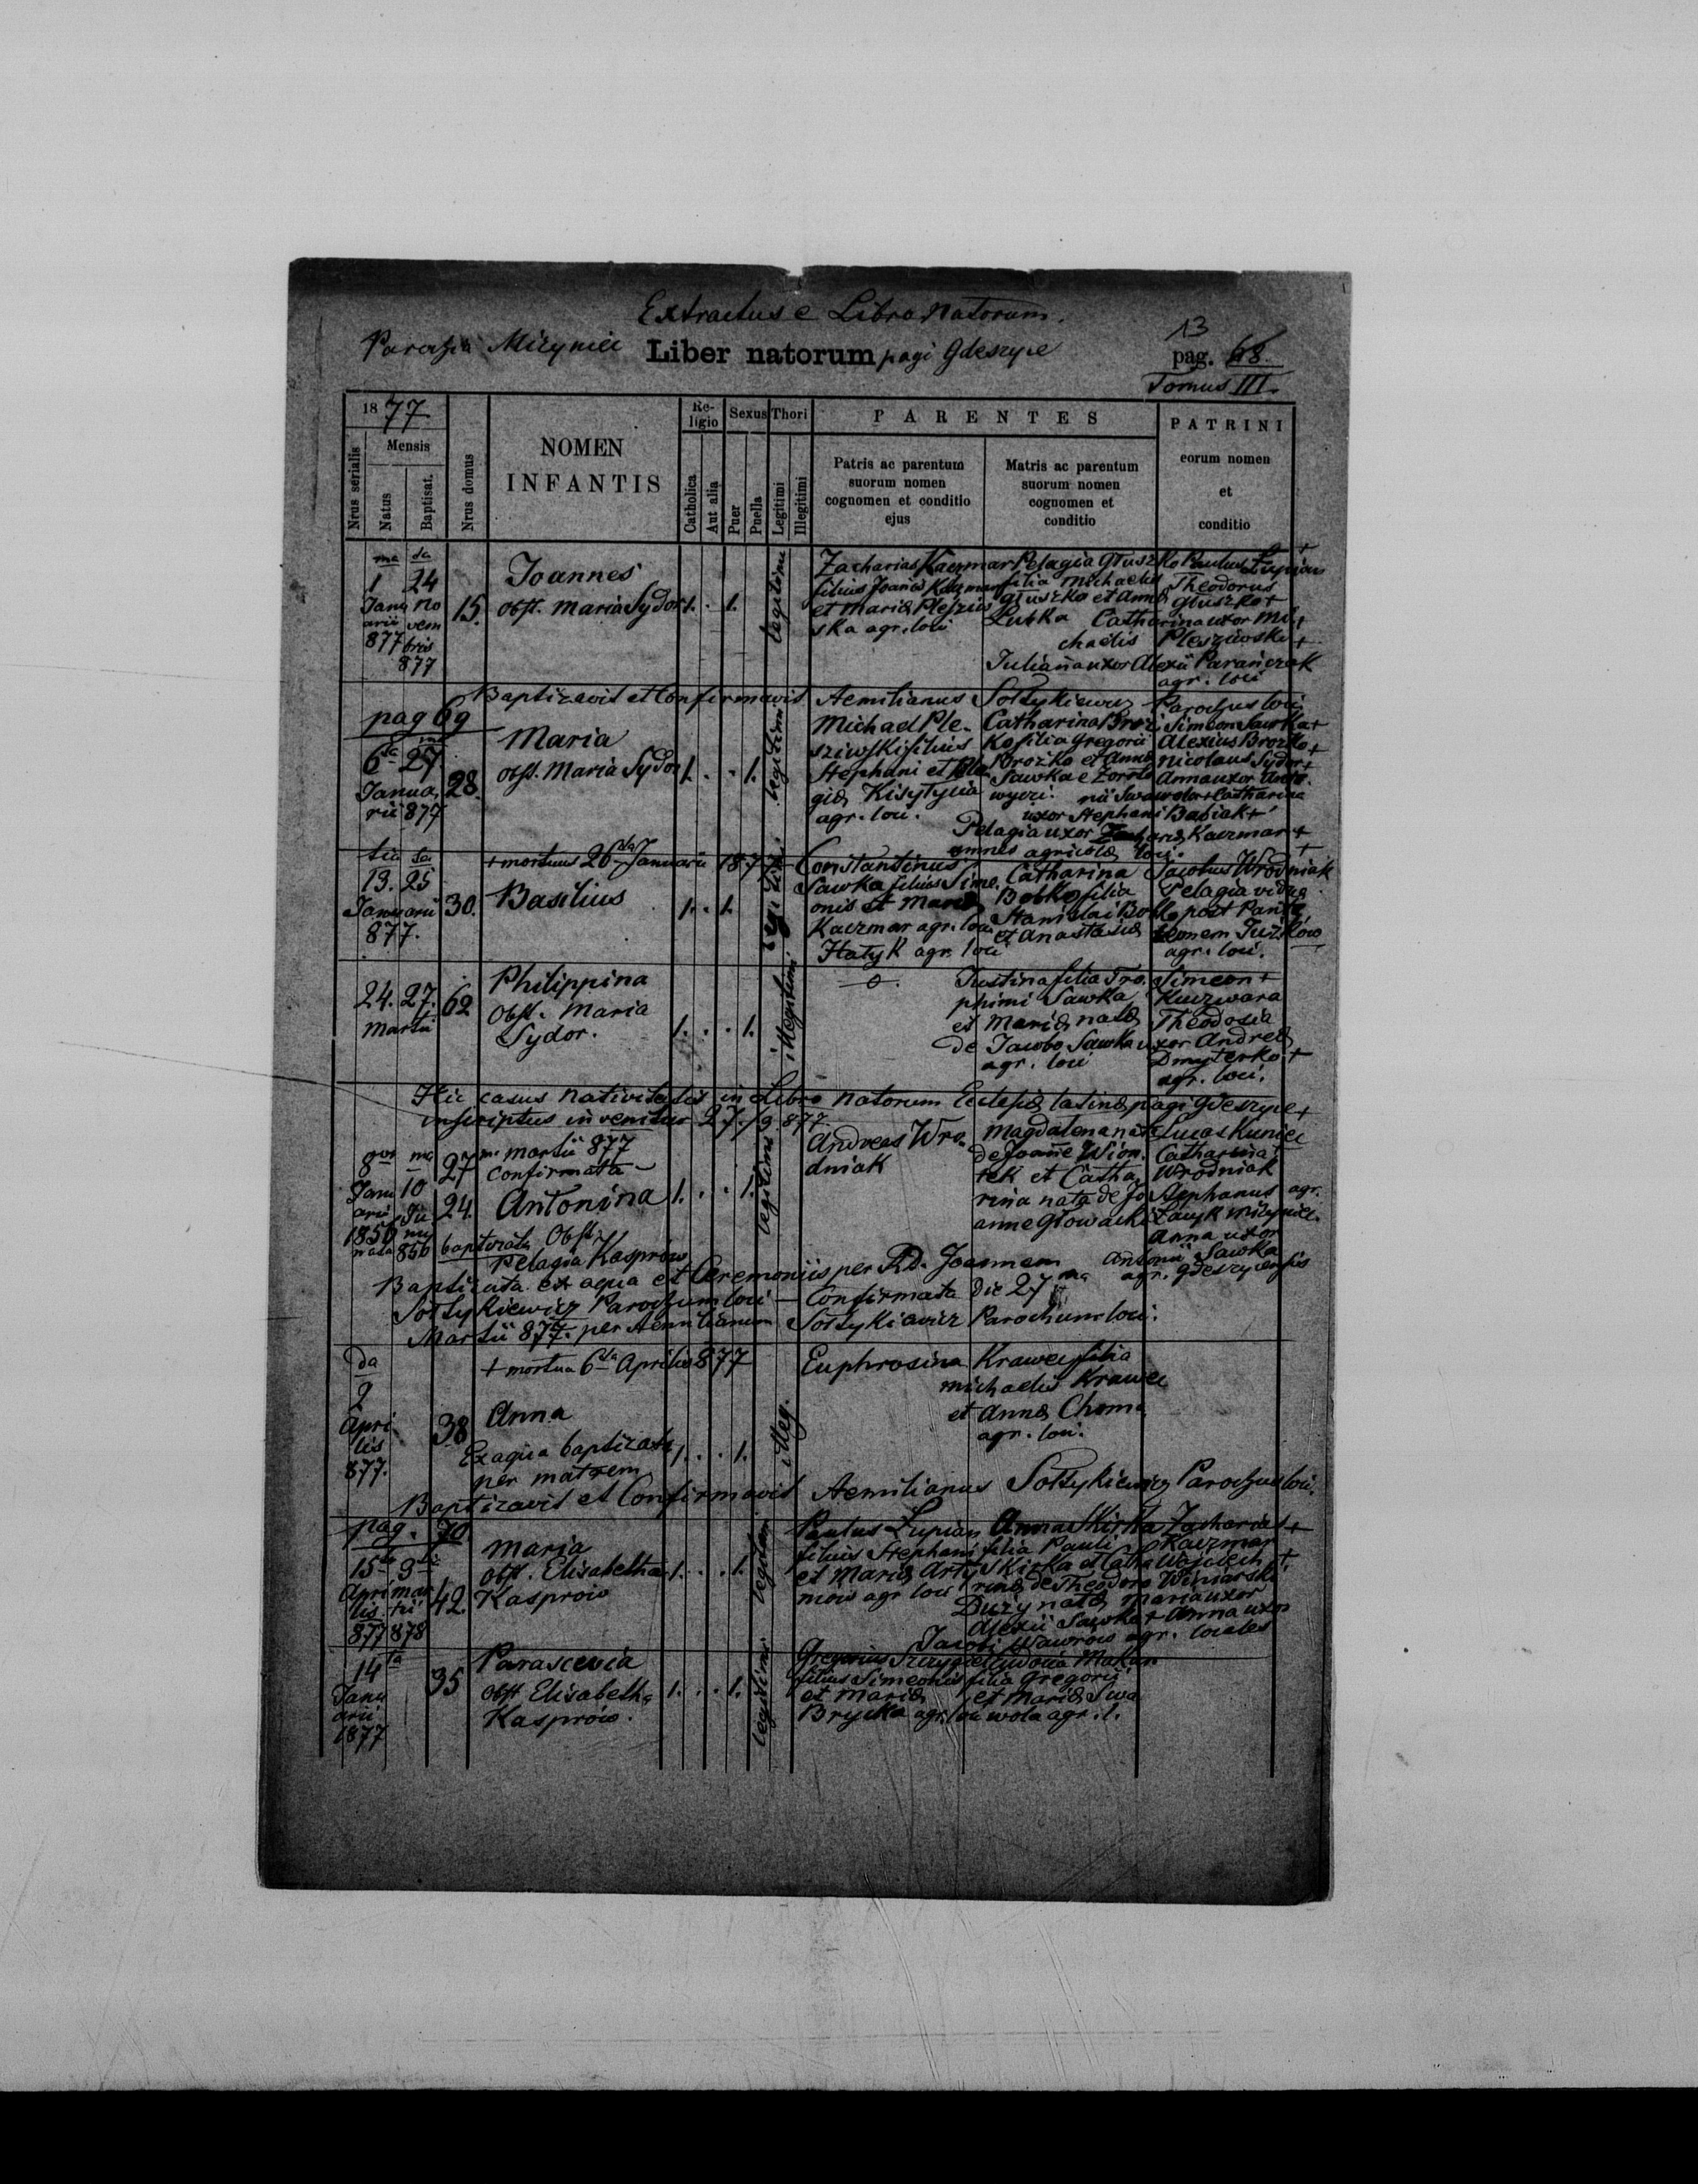 Extractus e Libro Natorum.
Parochia Mizyniec Liber natorum pagi Gdeszyce
13
pag. 68
Tomus III.
18 77
Nrus serialis
Mensis
Natus
Baptisat.
Nrus domus
NOMEN
INFANTIS
Re-
ligio
Catholica
Aut alia
Sexus
Puer
Puella
Thori
Legitimi
Illegitimi
PARENTES
Patris ac parentum
suorum nomen
cognomen et conditio
ejus
Matris ac parentum
suorum nomen
cognomen et
conditio
PATRINI
eorum nomen
et
conditio
ma da
1 24
Janu no
arii vem
877 bris
877
15.
Joannes
obst. Maria Sydor
1. . 1.
legitimi
Zacharias Kaczmar
filius Joannis Kaczmar
et Mariæ Plesziw
ska agr. loci
Pelagia Głuszko
filia Michaelis
Głuszko et Annæ
Lubka
Paulus Łupian +
Theodorus
Głuszko +
Catharina uxor Mi
chaelis Pleszciwski +
Julianna uxor Alexii Parańczak
agr. loci
Baptizavit et Confirmavit Aemilianus Sołtykiewicz Parochus loci
pag 69
6ta 27ma
Janua
rii 877
28.
Maria
obst. Maria Sydor
1. . . 1.
legitimi
Michael Ple-
sziwski filius
Stephani et Pela
giæ Kisytycia
agr. loci.
Catharina Broż
ko filia Gregorii
Brożko et Annæ
Sawka e Zoroto
wyczi.
Simeon Sawka +
Alexius Brożko +
Nicolaus Sydor +
Anna uxor Anto
nii Swawola + Catharina
uxor Stephani Babiak +
Pelagia uxor Zachariæ Kaczmar +
omnes agricolæ loci.
+ mortuus 26ta Januarii 1877
tia ta
13. 25
Januarii
877.
30.
Basilius
1. . 1.
legitimi
Constantinus
Sawka filius Sime
onis et Mariæ
Kaczmar agr. loci
Hatyk agr. loci
Catharina
Bobko filia
Stanislai Bobko
et Anastasiæ
Jacobus Wrodniak +
Pelagia vidua
post Pante
lemonem Juzkow
agr. loci.
24. 27.
Martii
62
Philippina
Obst. Maria
Sydor.
1. . . 1.
illegitimi
o.
Justina filia Tro
phimi Sawka
et Mariæ natæ
de Jacobo Sawka
agr. loci
Simeon +
Kuczwara
Theodosia
uxor Andreæ
Dmyterko +
agr. loci.
Hic casus nativitatis in Libro natorum Eclesiæ latinæ pagi Gdeszyce +
inscriptus invenitur 27./3 877
8va ma
Janu 10
arii Ju
1856 nii
nata 856
27 ma Martii 877
confirmata
24.
Antonina
baptizata Obst.
Pelagia Kasprow
1. . . 1.
legitimi
Andreas Wro
dniak
Magdalena nata
de Joanne Wion
tek et Catha
rina nata de Jo
anne Głowacki
Lucas Kuniec
Catharina
Wrodniak
Stephanus agr.
Zauyk Mizyniec.
Anna uxor
Antonii Sawka
agr. gdeszycensis
Baptizata ex aqua et Ceremoniis per R.D. Joannem
Sołtykiewicz Parochum loci – Confirmata die 27ma
Martii 877. per Aemilianum Sołtykiewicz Parochum loci.
da
2
Apri
lis
877.
+ mortua 6ta Aprilis 877
38
Anna
Ex aqua baptizata
per matrem
1. . . 1.
illeg.
Euphrosina Krawec filia
Michaelis Krawec
et Annæ Choma
agr. loci.
Baptizavit et Confirmavit Aemilianus Sołtykiewicz Parochus loci.
pag. 70
15ta 9
Apri mar
lis tii
877 878
42.
Maria
obst. Elisabetha
Kasprow
1. . . 1.
legitimi
Paulus Łupian
filius Stephani
et Mariæ Arty
mow agr loci
Anna Skirka
filia Pauli
Skirka et Catha
rinæ de Theodoro
Duży natæ
Zacharias +
Kaczmar
Wojciech +
Winiarski
Maria uxor
Alexii Sawka + Anna uxor
Jacobi Wawrow agr. locales
14ta
Janu
arii
1877
35
Parascevia
obst. Elisabetha
Kasprow.
1. . . 1.
legitimi
Gregorius
filius Simeonis
et Mariæ
Brycka agr. loci
Makar
filia Gregorii
et Mariæ Swa
wola agr. l.